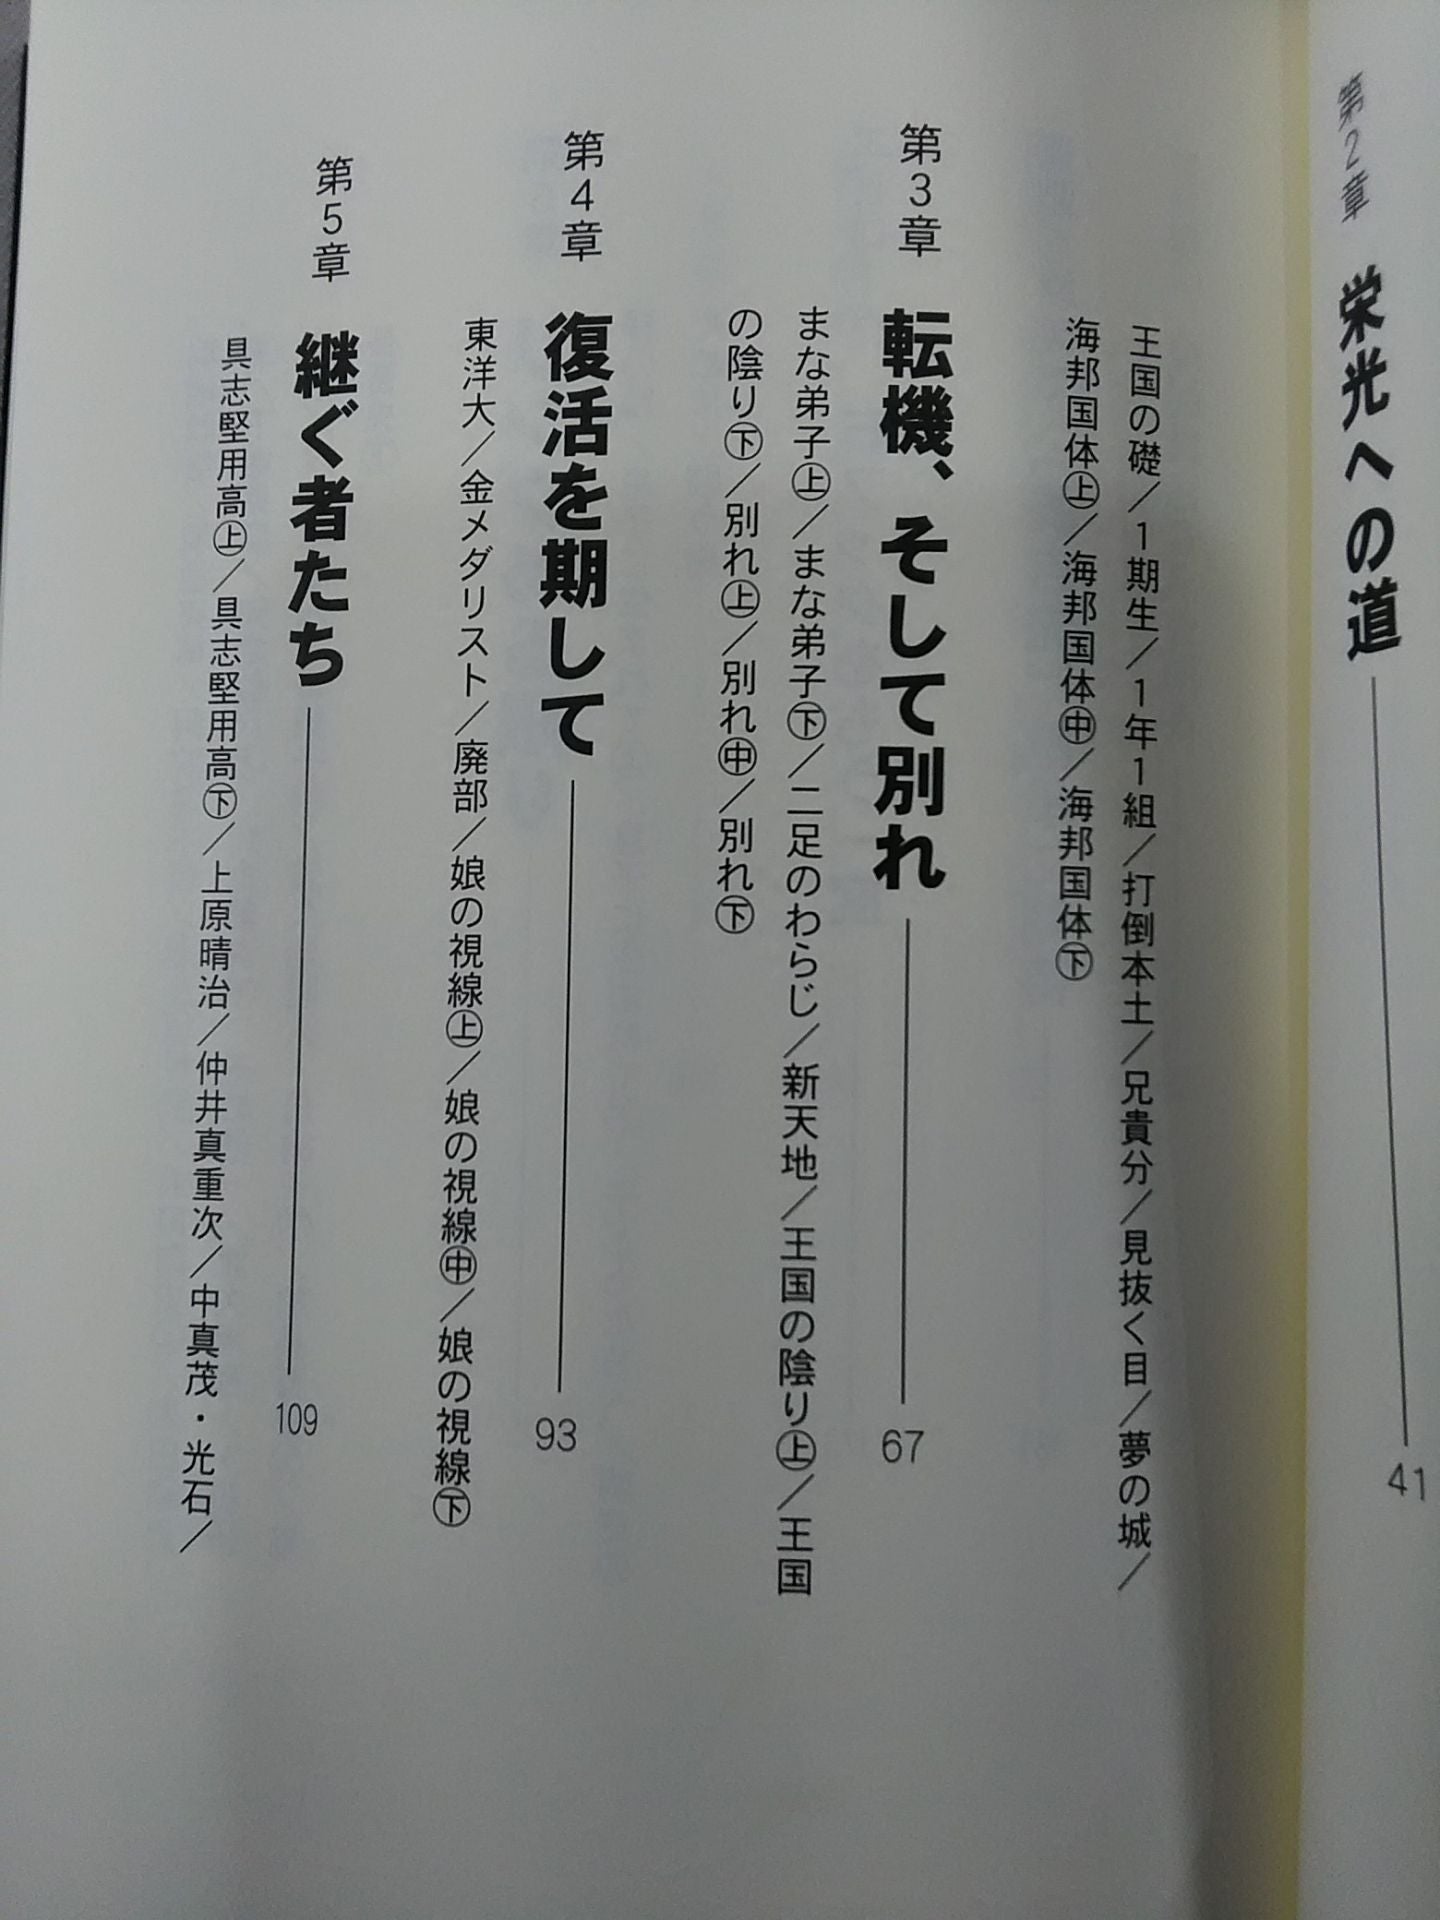 第2章 栄光への道 41
王国の礎／1期生／1年1組／打倒本土／兄貴分／見抜く目／夢の城／
海邦国体㊤／海邦国体㊥／海邦国体㊦
第3章 転機、そして別れ 67
まな弟子㊤／まな弟子㊦／二足のわらじ／新天地／王国の陰り㊤／王国
の陰り㊦／別れ㊤／別れ㊥／別れ㊦
第4章 復活を期して 93
東洋大／金メダリスト／廃部／娘の視線㊤／娘の視線㊥／娘の視線㊦
第5章 継ぐ者たち 109
具志堅用高㊤／具志堅用高㊦／上原晴治／仲井真重次／中真茂・光石／